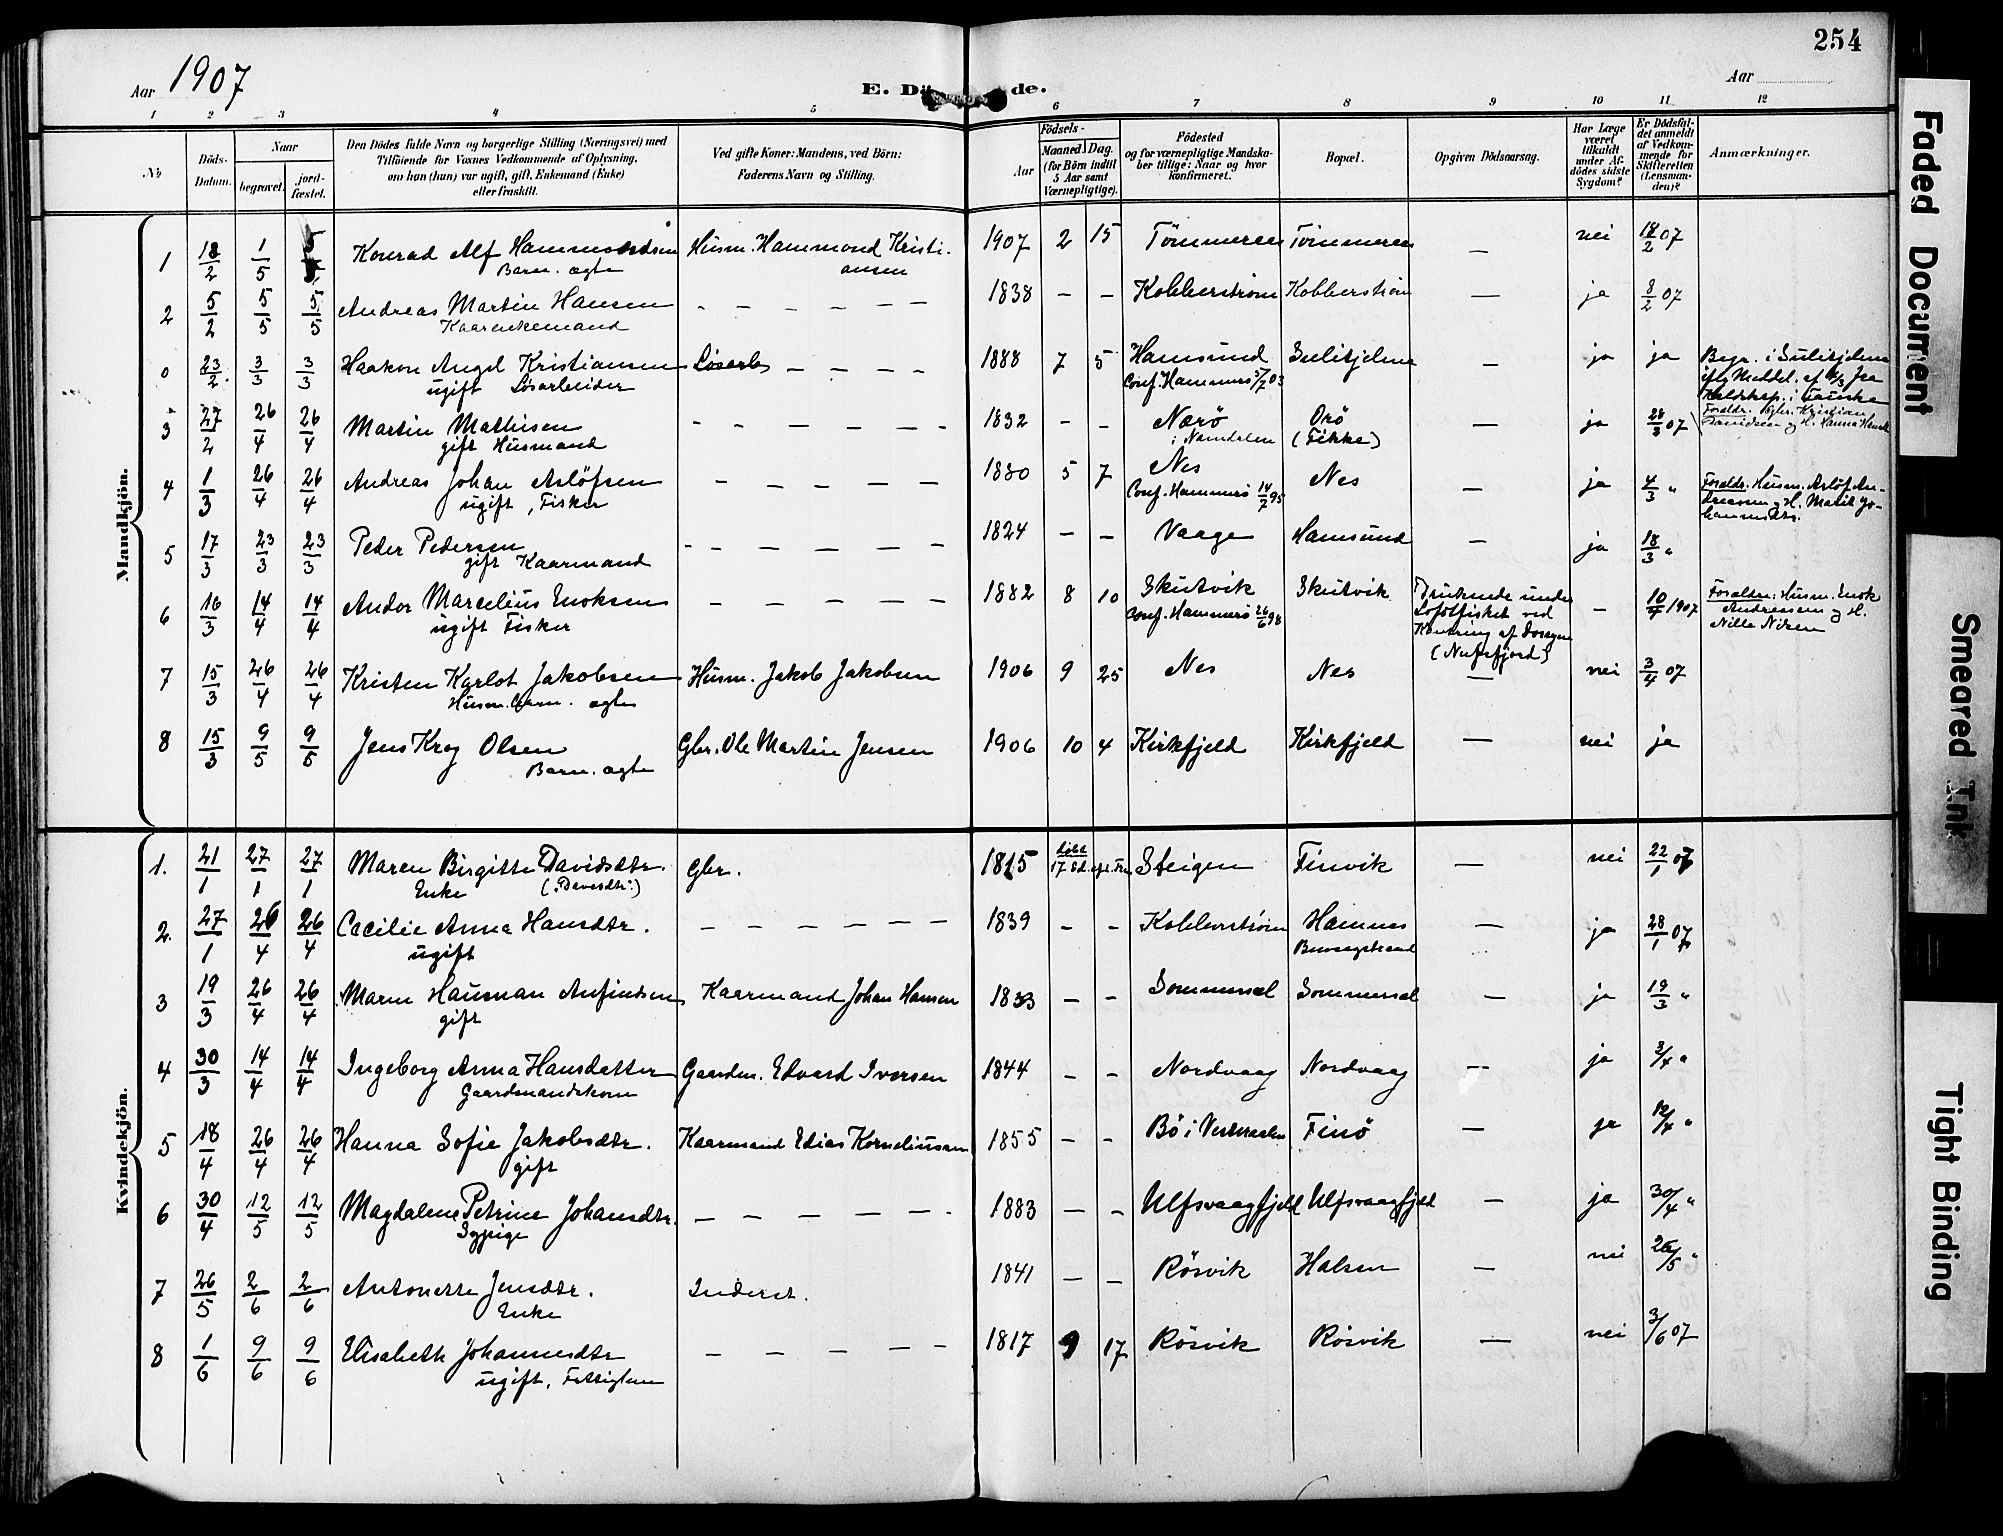 254
Aar 1907
E. Dø de.
Aar
1 2 3 4 5 6 7 8 9 10 11 12
No
Döds-Datum.
Naar
begravet.
jord-fæstet.
Den Dödes fulde Navn og borgerlige Stilling (Næringsvei) med
Tilföiende for Voxnes Vedkommende af Oplysning,
om han (hun) var ugift, gift, Enkemand (Enke)
eller fraskilt.
Ved gifte Koner: Mandens, ved Börn:
Faderens Navn og Stilling.
Födsels-
Aar
Maaned Dag.
(for Börn indtil
5 Aar samt
Værnepligtige).
Födested
og for værnepligtige Mandska-
ber tillige: Naar og hvor
konfirmeret.
Bopæl.
Opgiven Dödsaarsag.
Har Læge
været
tilkaldt
under Af-
dödes sidste
Sygdom?
Er Dödsfal-
det anmeldt
af Vedkom-
mende for
Skifteretten
(Lensman-
den)?
Anmærkninger.
Mandkjön.
1 18/2 1/5 Konrad Alf Hammondsen Husm. Hammond Kristi- 1907 2 15 Tömmernes Tömmernes — nei 18/2 07
Barn. ægte ansen
2 5/2 5/5 5/5 Andreas Martin Hansen — — — — — 1838 — — Kobberstrøm Kobberstrøm — ja 8/2 07
Kaarenkemand
0 23/2 3/3 3/3 Haakon Angel Kristiansen Løsarb — — — — 1888 7 5 Hamsund Sulitjelma — ja ja Begr. i Sulitjelma
ugift Løsarbeider Conf. Hammerö 5/7 03
3 27/2 26/4 26/4 Martin Mathisen — — — — — 1832 — — Nærö Orö — ja 28/3 07
gift Husmand i Namdalen (Fikke)
4 1/3 26/4 26/4 Andreas Johan Aslöfsen — — — — — 1880 5 7 Nes Nes — ja 4/3 " Foreldr. Husm. Aslöf An-
ugift, Fisker Conf. Hammerö 14/7 95 dreasen og H. Marit Jo-
hannesdtr.
5 17/3 23/3 23/3 Peder Pedersen — — — — — 1824 — — Vaage Hamsund — ja 18/3 "
gift Kaarmand
6 16/3 14/4 14/4 Andor Marselius Enoksen — — — — — 1882 8 10 Skutvik Skutvik Druknede under — 10/4 1907 Foreldre: Husm. Enok
ugift Fisker Conf. Hammerö 26/6 98 Lofotfisket ved Andreasen og H.
Kantring af Nille Nilsen
(Nufsfjord)
7 15/3 26/4 26/4 Kristen Karlot Jakobsen Husm. Jakob Jakobsen 1906 9 25 Nes Nes — nei 3/4 07
Husm. barn. ægte
8 15/3 9/5 9/5 Jens Krog Olsen Gbr. Ole Martin Jensen 1906 10 4 Kirkfjeld Kirkfjeld — nei ja
Barn. ægte
Kvindekjön.
1. 21/1 27/1 27/1 Maren Birgitte Davidsdtr. Gbr. 1815 döbt Steigen Finvik — nei 22/1 07
Enke
2. 27/1 26/4 26/4 Cæcilie Anna Hansdtr. — — — — — 1839 — — Kobberstrøm Hamnes — ja 28/1 07
ugift
3 19/3 26/4 26/4 Maren Hausman Anfindsen Kaarmand Johan Hansen 1833 — — Sommersel Sommersel — ja 19/3 "
gift
4 30/3 14/4 14/4 Ingeborg Anna Hansdatter Gaardm. Edvard Iversen 1844 — — Nordvaag Nordvaag — ja 3/4 "
Gaardmandskone
5 18/4 26/4 26/4 Hanna Sofie Jakobsdtr. Kaarmand Edias Korneliussen 1855 — — Bö i Vesteraalen Finö — ja 19/4 "
gift
6 30/4 12/5 12/5 Magdalene Petrine Johansdtr. — — — — — 1883 — — Ulfsvaagfjeld Ulfsvaagfjeld — ja 30/4 "
Sypige
7 26/5 2/6 2/6 Antonette Jensdtr. Inderst. 1841 — — Rösvik Halsen — nei 26/5 "
Enke
8 1/6 9/6 9/6 Elisabeth Johannesdtr — — — — — 1817 9 17 Rösvik Rösvik — nei 3/6 07
ugift, Fattiglem
Faded Document
Smeared Ink
Tight Binding